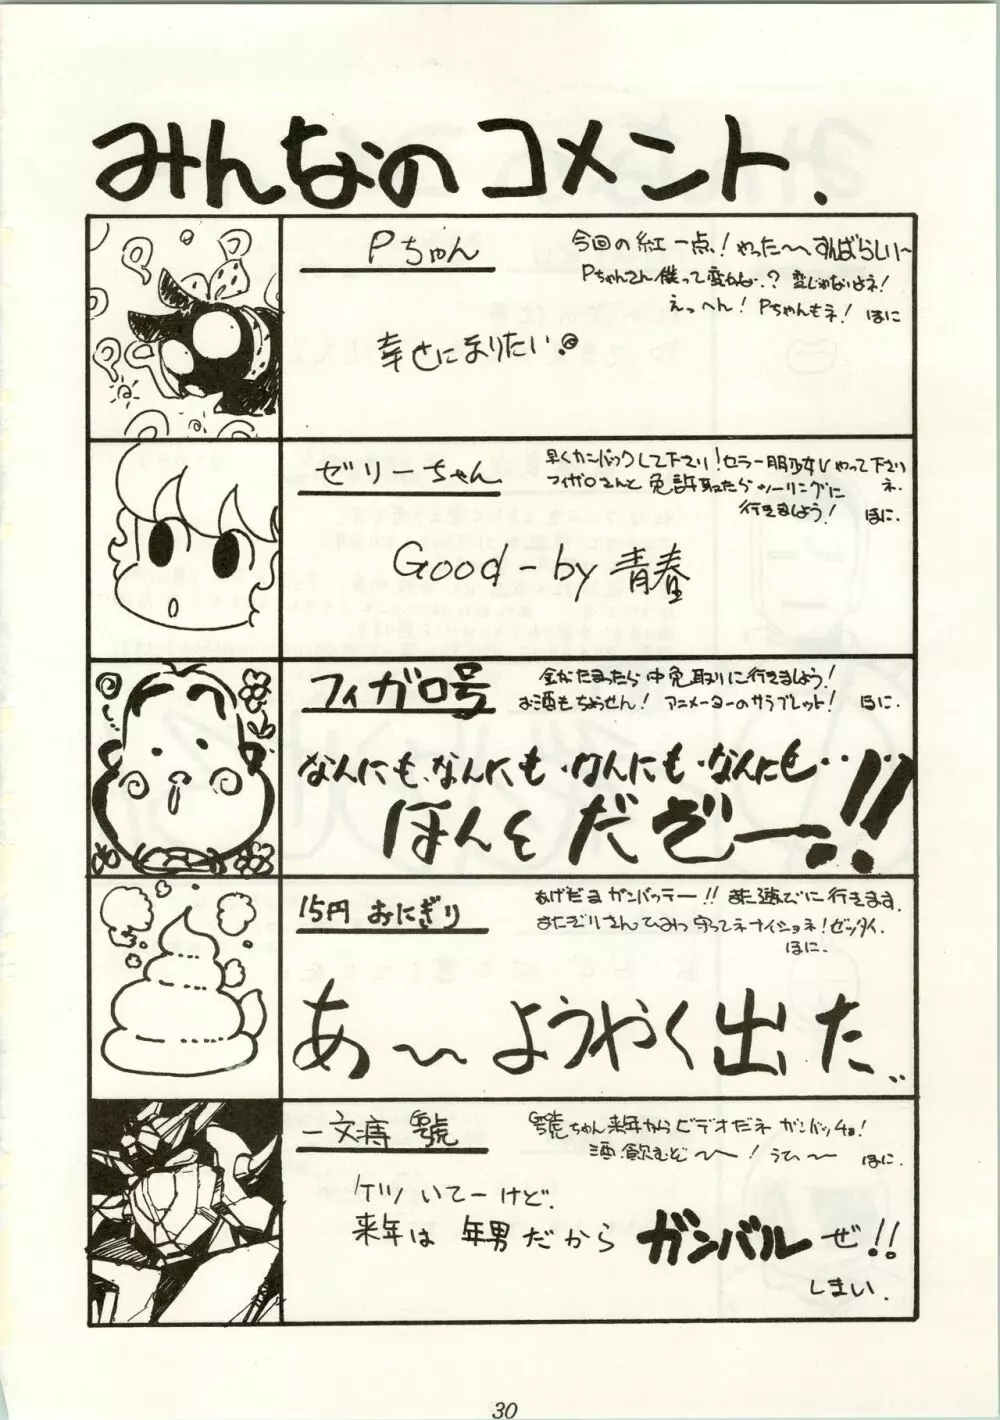 みんなのコメント.
Pちゃん
今回の紅一点！やった〜〜すんばらしい〜
Pちゃんさん僕って変かな？変じゃないよネ！
えっへん！Pちゃんもネ！ほに
幸せになりたい。
ゼリーちゃん
早くカンバックして下さい！セラー服少女Vやって下さいネ.
フィガロさんと免許取たらツーリングに
行きましょう！ほに.
Good-by 青春
フィガロ号
金がたまったら中免取りに行きましょう！
お酒もちょうせん！アニメーターのサラブレット！ほに.
なんにも、なんにも・なんにも・なんにも・・・!!
ほんとだぞー!!
15円おにぎり
あげだまガンバッテー!!また遊びに行きます.
おにぎりさんひみつ守ってネナイショネ！ゼッタイ.
ほに.
あ〜ようやく出た..
一文薄 號
號ちゃん来年からビデオだネガンバッチョ！
酒飲むぞ〜〜！うひ〜〜ほに.
ケツいてーけど.
来年は年男だからガンバルぜ!!
しまい.
30